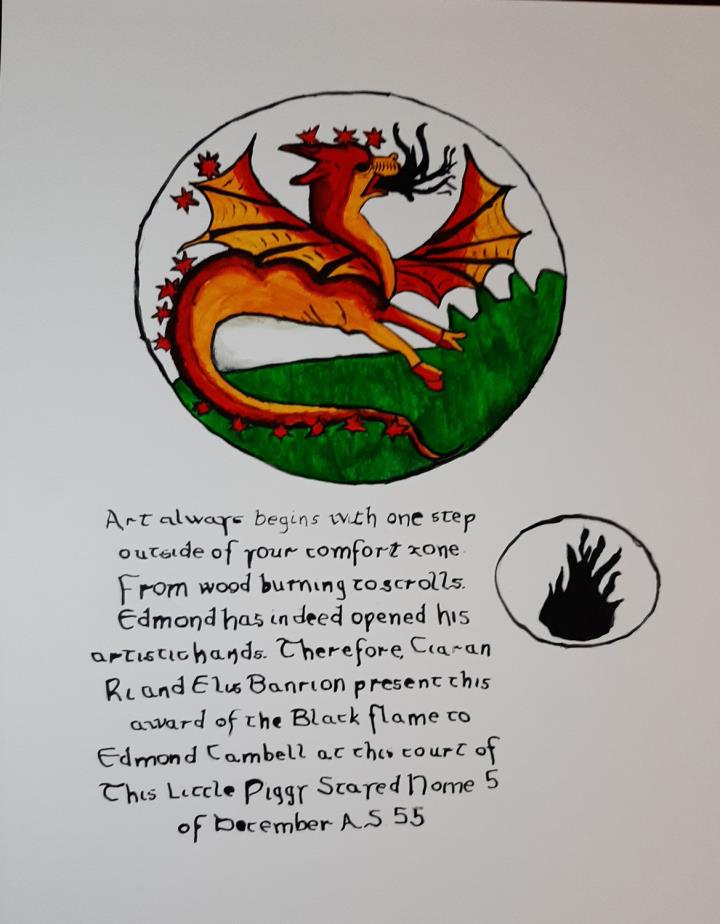 Art always begins with one step
outside of your comfort zone.
From wood burning to scrolls.
Edmond has indeed opened his
artistic hands. Therefore, Ciaran
Ri and Elis Banrion present this
award of the Black flame to
Edmond Cambell at this court of
This Little Piggy Stayed Home 5
of December A.S 55